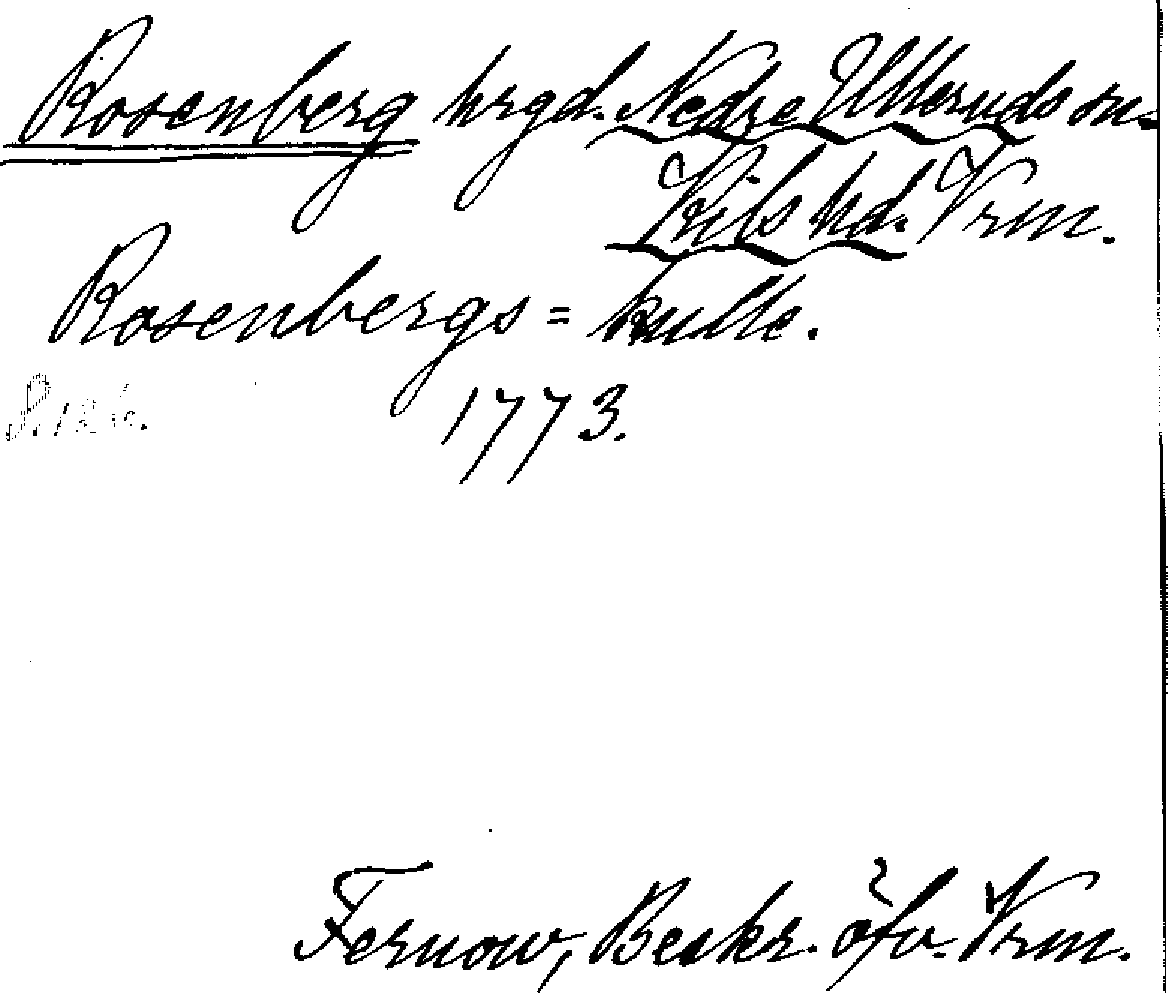 Rosenberg hrgd. Nedre Ulleruds sn.
Kils hd. Vrm.
Rosenbergs=kulle.
S. 126. 1773.
Fernow, Beskr. öfv. Vrm.